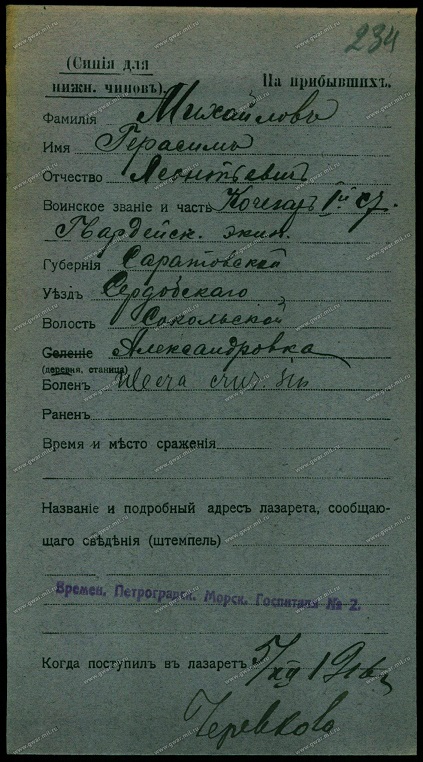 234
(Синія для
нижн. чиновъ).
На прибывшихъ.
Фамилія Михайловъ
Имя Герасимъ
Отчество Леонтьевичъ
Воинское званіе и часть Кочегаръ 1й ст.
Гвардейск. экип.
Губернія Саратовской
Уѣздъ Сердобскаго
Волость Сокольской
Селеніе Александровка
(деревня, станица)
Боленъ Ulcera crur. sin
Раненъ
Время и мѣсто сраженія
Названіе и подробный адресъ лазарета, сообщаю-
щаго свѣдѣнія (штемпель)
Времен. Петроградск. Морск. Госпиталя № 2.
Когда поступилъ въ лазаретъ 5/XII 1916 г.